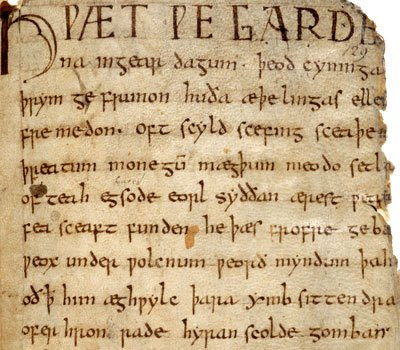 HǷÆT ǷE GARDE
129
na ingear dagum. þeod cyninga
þrym ge frunon huða æþelingas elle
fre medon. oft scyld scefing sceaþe
þreatum monegū mægþum meodo setla
of teah egsode eorl syððan ærest ƿear
fea sceaft funden he þæs frofre geba
ƿeox under ƿolcnum ƿeorð myndum þah
oð ꝥ him æghƿylc þara ymb sittendra
ofer hron rade hyran scolde gomban